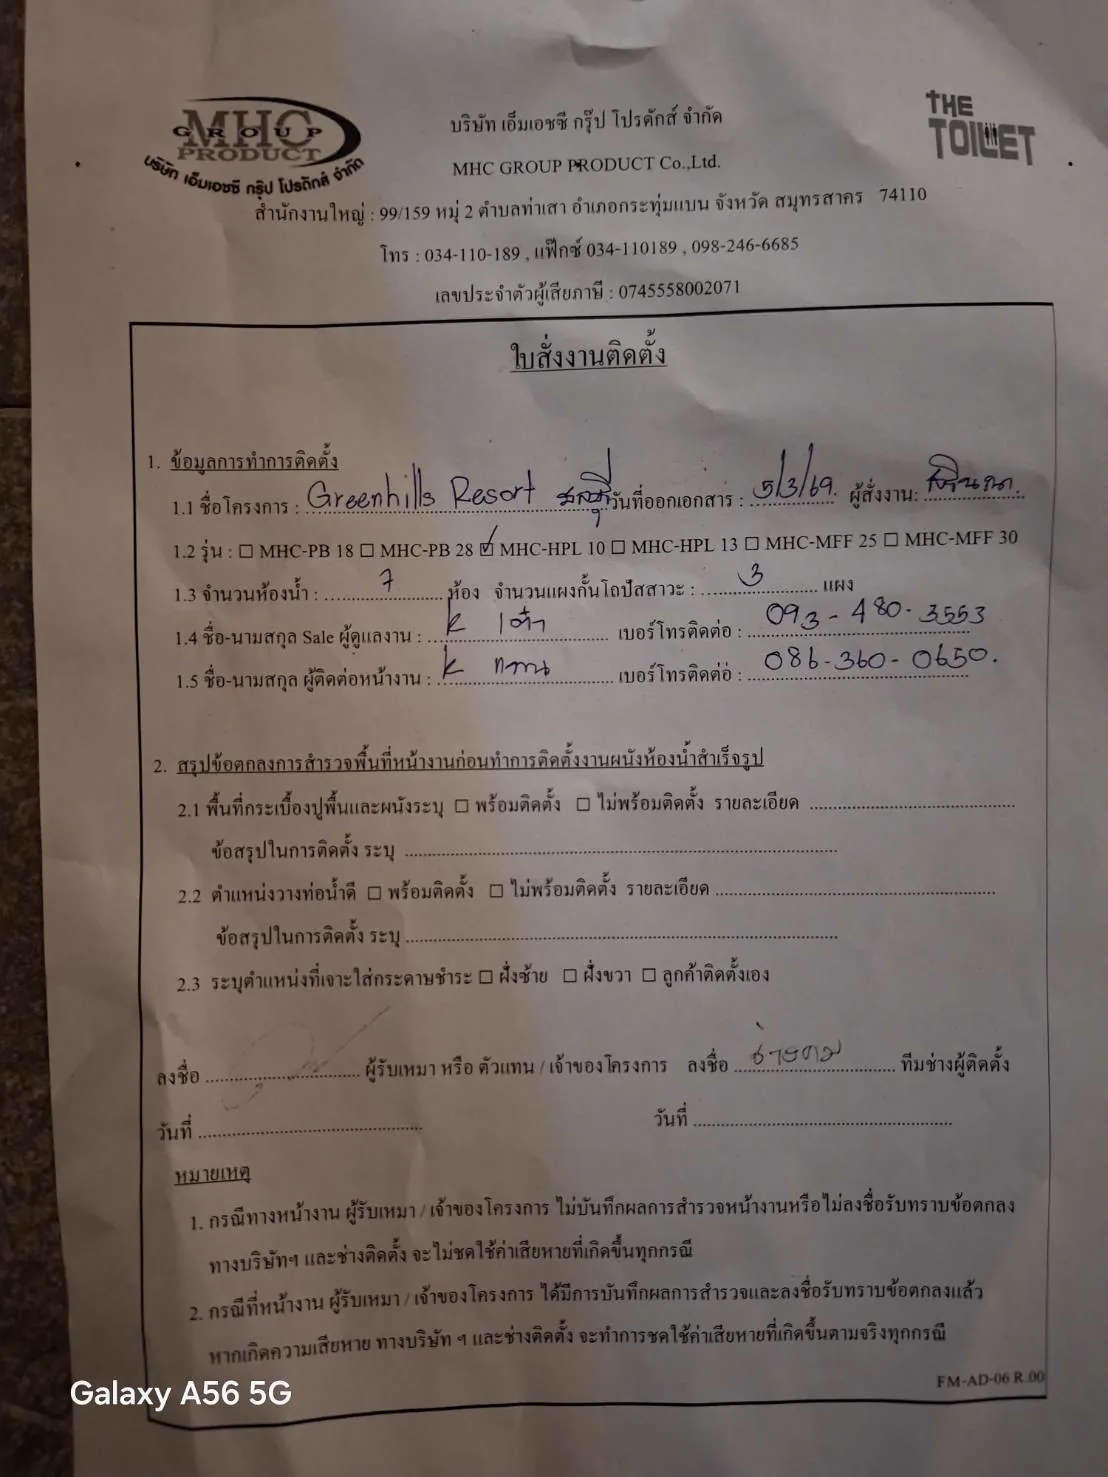 MHC
GROUP
PRODUCT
บริษัท เอ็มเอชซี กรุ๊ป โปรดักส์ จำกัด
THE
TOILET
บริษัท เอ็มเอชซี กรุ๊ป โปรดักส์ จำกัด
MHC GROUP PRODUCT Co.,Ltd.
สำนักงานใหญ่ : 99/159 หมู่ 2 ตำบลท่าเสา อำเภอกระทุ่มแบน จังหวัด สมุทรสาคร 74110
โทร : 034-110-189 , แฟ๊กซ์ 034-110189 , 098-246-6685
เลขประจำตัวผู้เสียภาษี : 0745558002071
ใบสั่งงานติดตั้ง
1. ข้อมูลการทำการติดตั้ง
1.1 ชื่อโครงการ : Greenhills Resort ชลบุรี วันที่ออกเอกสาร : 5/3/69 ผู้สั่งงาน:
1.2 รุ่น : ☐ MHC-PB 18 ☐ MHC-PB 28 ☑ MHC-HPL 10 ☐ MHC-HPL 13 ☐ MHC-MFF 25 ☐ MHC-MFF 30
1.3 จำนวนห้องน้ำ : 7 ห้อง จำนวนแผงกั้นโถปัสสาวะ : 3 แผง
1.4 ชื่อ-นามสกุล Sale ผู้ดูแลงาน : k เต๋า เบอร์โทรติดต่อ : 093-480-3553
1.5 ชื่อ-นามสกุล ผู้ติดต่อหน้างาน : k เบอร์โทรติดต่อ : 086-360-0650.
2. สรุปข้อตกลงการสำรวจพื้นที่หน้างานก่อนทำการติดตั้งงานผนังห้องน้ำสำเร็จรูป
2.1 พื้นที่กระเบื้องปูพื้นและผนังระบุ ☐ พร้อมติดตั้ง ☐ ไม่พร้อมติดตั้ง รายละเอียด
ข้อสรุปในการติดตั้ง ระบุ
2.2 ตำแหน่งวางท่อน้ำดี ☐ พร้อมติดตั้ง ☐ ไม่พร้อมติดตั้ง รายละเอียด
ข้อสรุปในการติดตั้ง ระบุ
2.3 ระบุตำแหน่งที่เจาะใส่กระดาษชำระ ☐ ฝั่งซ้าย ☐ ฝั่งขวา ☐ ลูกค้าติดตั้งเอง
ลงชื่อ ผู้รับเหมา หรือ ตัวแทน / เจ้าของโครงการ ลงชื่อ ช่างคม ทีมช่างผู้ติดตั้ง
วันที่ วันที่
หมายเหตุ
1. กรณีทางหน้างาน ผู้รับเหมา / เจ้าของโครงการ ไม่บันทึกผลการสำรวจหน้างานหรือไม่ลงชื่อรับทราบข้อตกลง
ทางบริษัทฯ และช่างติดตั้ง จะไม่ชดใช้ค่าเสียหายที่เกิดขึ้นทุกกรณี
2. กรณีที่หน้างาน ผู้รับเหมา / เจ้าของโครงการ ได้มีการบันทึกผลการสำรวจและลงชื่อรับทราบข้อตกลงแล้ว
หากเกิดความเสียหาย ทางบริษัท ฯ และช่างติดตั้ง จะทำการชดใช้ค่าเสียหายที่เกิดขึ้นตามจริงทุกกรณี
FM-AD-06 R.00
Galaxy A56 5G